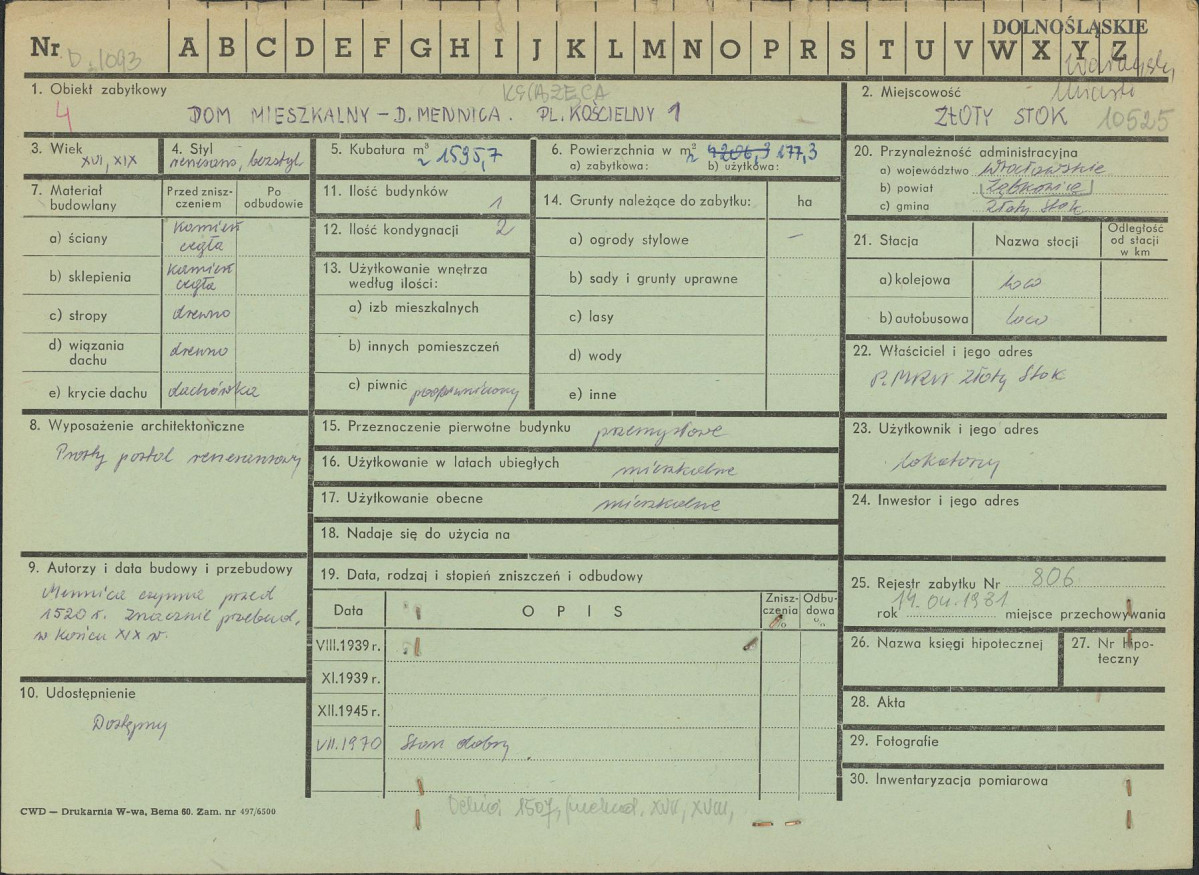 DOLNOŚLĄSKIE
Nr D.1093 A B C D E F G H I J K L M N O P R S T U V W X Y Z
1. Obiekt zabytkowy KSIĄŻĘCA
4 DOM MIESZKALNY – D. MENNICA. PL. KOŚCIELNY 1
2. Miejscowość
ZŁOTY STOK 10525
3. Wiek
XVI, XIX
4. Styl
renesans, bezstyl
5. Kubatura m³
~ 1595,7
6. Powierzchnia w m² 177,3
a) zabytkowa: b) użytkowa:
20. Przynależność administracyjna
a) województwo Wrocławskie
b) powiat Ząbkowice
c) gmina Złoty Stok
7. Materiał budowlany
Przed zniszczeniem
Po odbudowie
a) ściany kamień cegła
b) sklepienia kamień cegła
c) stropy drewno
d) wiązania dachu drewno
e) krycie dachu dachówka
11. Ilość budynków 1
12. Ilość kondygnacji 2
13. Użytkowanie wnętrza
według ilości:
a) izb mieszkalnych
b) innych pomieszczeń
c) piwnic podpiwniczony
14. Grunty należące do zabytku: ha
a) ogrody stylowe –
b) sady i grunty uprawne
c) lasy
d) wody
e) inne
21. Stacja Nazwa stacji Odległość od stacji w km
a) kolejowa loco
b) autobusowa loco
22. Właściciel i jego adres
Złoty Stok
8. Wyposażenie architektoniczne
Prosty portal renesansowy
15. Przeznaczenie pierwotne budynku przemysłowe
16. Użytkowanie w latach ubiegłych mieszkalne
17. Użytkowanie obecne mieszkalne
18. Nadaje się do użycia na
23. Użytkownik i jego adres
lokatorzy
24. Inwestor i jego adres
9. Autorzy i data budowy i przebudowy
Mennica czynna przed
1520 r. Znacznie przebud.
w końcu XIX w.
19. Data, rodzaj i stopień zniszczeń i odbudowy
Data OPIS Zniszczenia % Odbudowa %
VIII.1939 r.
XI.1939 r.
XII.1945 r.
VII.1970 Stan dobry
25. Rejestr zabytku Nr 806
rok 14.04.1981 miejsce przechowywania
26. Nazwa księgi hipotecznej
27. Nr hipoteczny
28. Akta
29. Fotografie
30. Inwentaryzacja pomiarowa
10. Udostępnienie
Dostępny
CWD — Drukarnia W-wa, Bema 60. Zam. nr 497/6500
1507, przebud. XVII, XVIII,